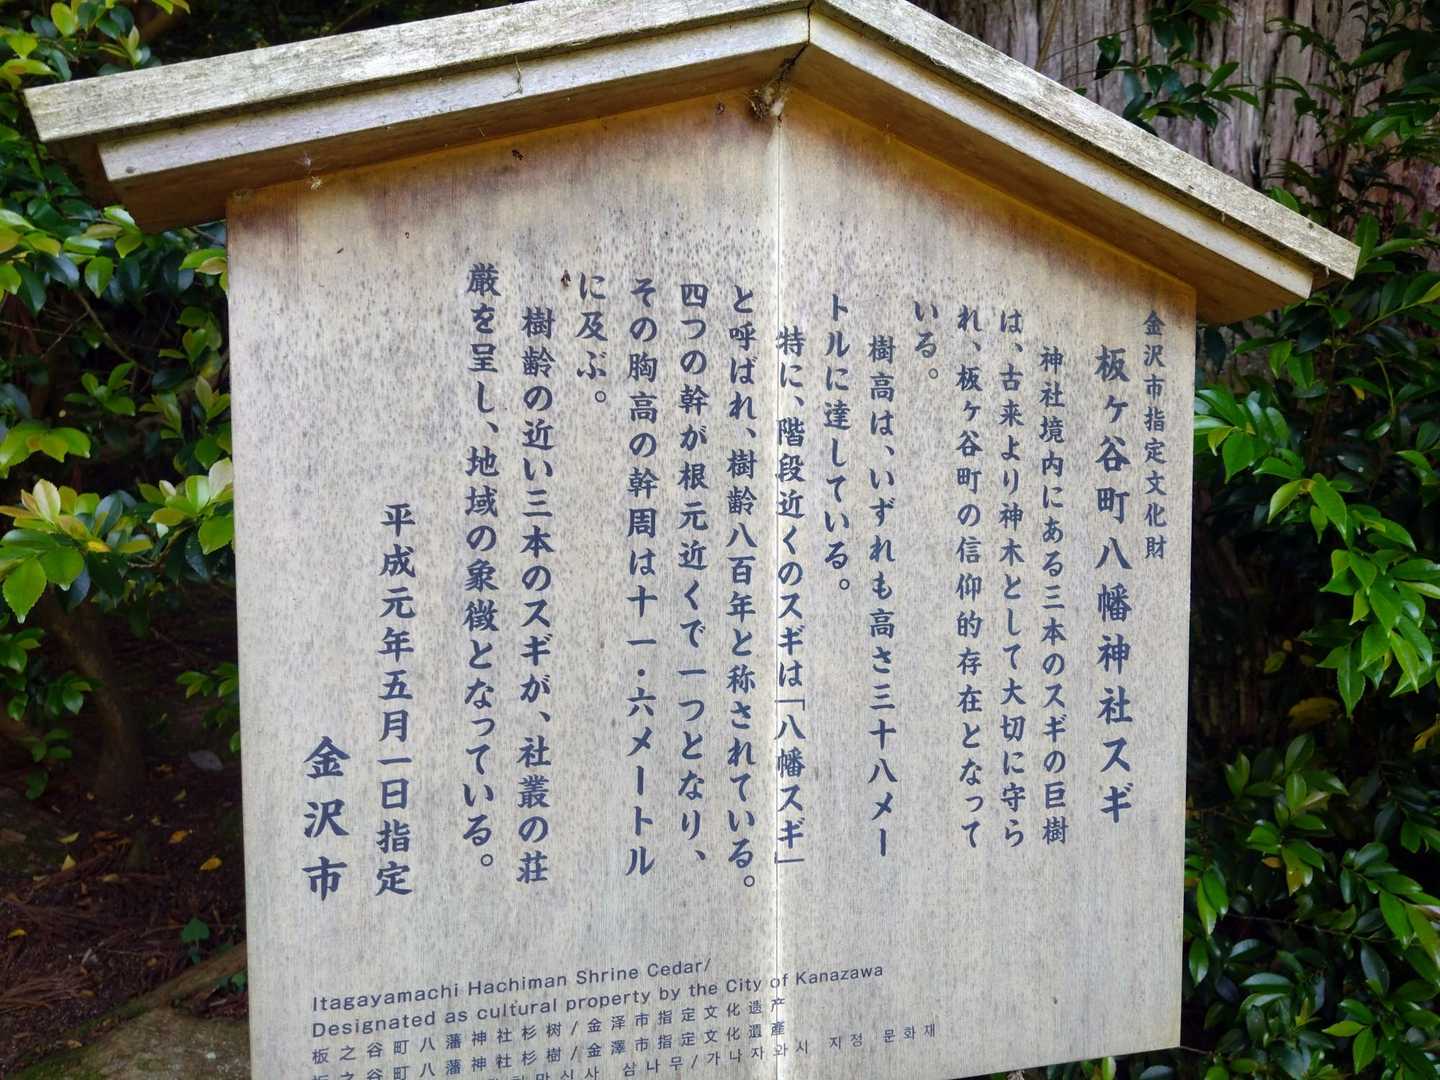 金沢市指定文化財
板ヶ谷町八幡神社スギ
神社境内にある三本のスギの巨樹
は、古来より神木として大切に守ら
れ、板ヶ谷町の信仰的存在となって
いる。
樹高は、いずれも高さ三十八メー
トルに達している。
特に、階段近くのスギは「八幡スギ」
と呼ばれ、樹齢八百年と称されている。
四つの幹が根元近くで一つとなり、
その胸高の幹周は十一・六メートル
に及ぶ。
樹齢の近い三本のスギが、社叢の荘
厳を呈し、地域の象徴となっている。
平成元年五月一日指定
金沢市
Itagayamachi Hachiman Shrine Cedar/
Designated as cultural property by the City of Kanazawa
板之谷町八藩神社杉树/金泽市指定文化遗产
板之谷町八藩神社杉樹/金澤市指定文化遺產
만신사 삼나무/가나자와시 지정 문화재